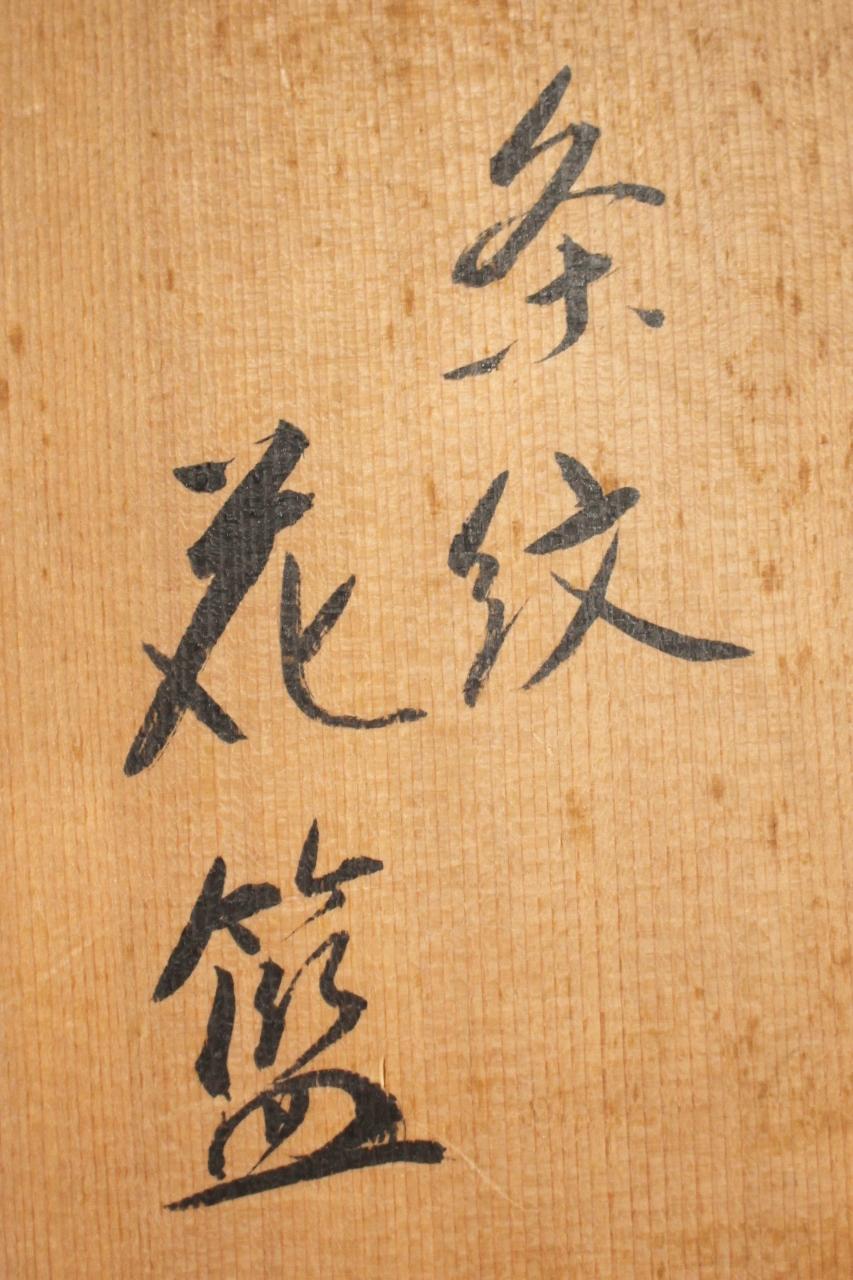 条紋
花籃